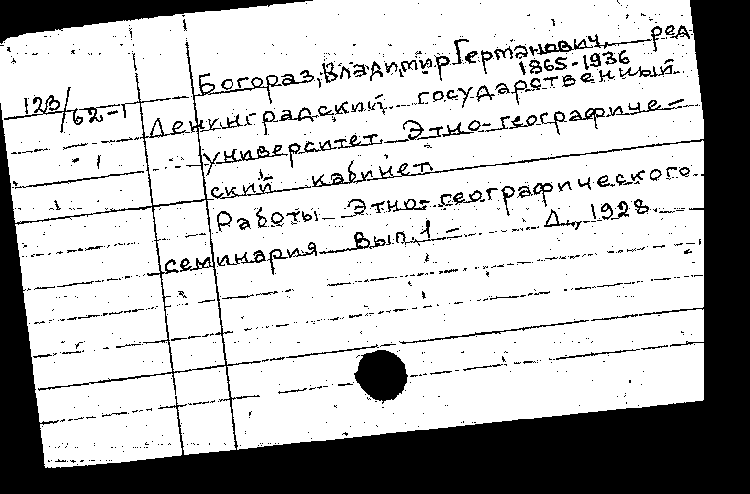 Богораз, Владимир Германович, ред
1865-1936
128/62-1
Ленинградский государственный
университет. Этно-географиче-
ский кабинет.
Работы Этно-географического
семинария Вып. 1 – Л., 1928